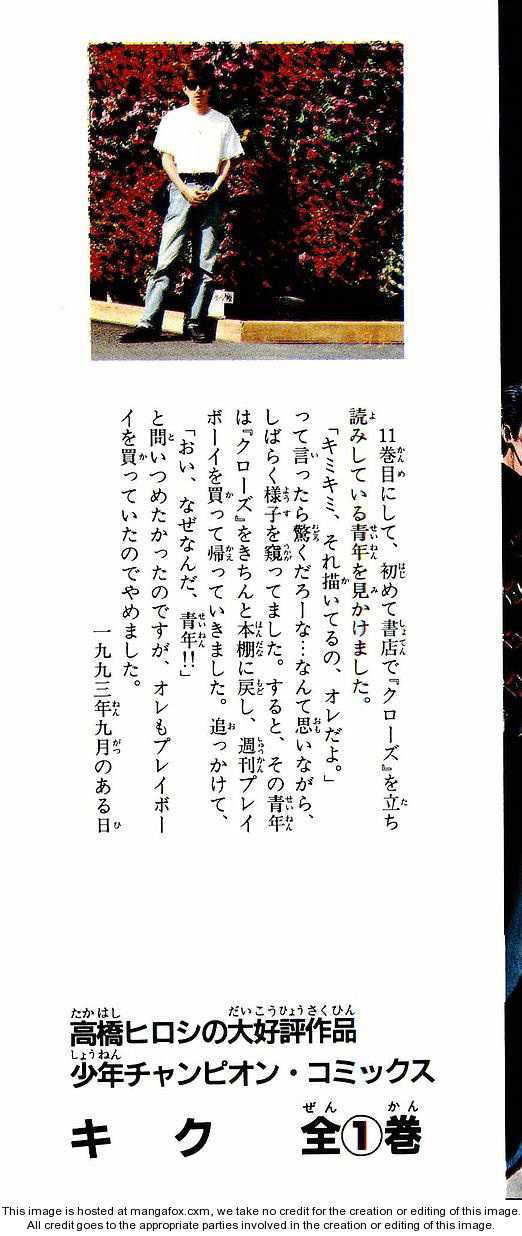 11巻目にして、初めて書店で『クローズ』を立ち
読みしている青年を見かけました。
「キミキミ、それ描いてるの、オレだよ。」
って言ったら驚くだろーな…なんて思いながら、
しばらく様子を窺ってました。すると、その青年
は『クローズ』をきちんと本棚に戻し、週刊プレイ
ボーイを買って帰っていきました。追っかけて、
「おい、なぜなんだ、青年!!」
と問いつめたかったのですが、オレもプレイボー
イを買っていたのでやめました。
一九九三年九月のある日
高橋ヒロシの大好評作品
少年チャンピオン・コミックス
キク 全①巻
This image is hosted at mangafox.cxm, we take no credit for the creation or editing of this image.
All credit goes to the appropriate parties involved in the creation or editing of this image.